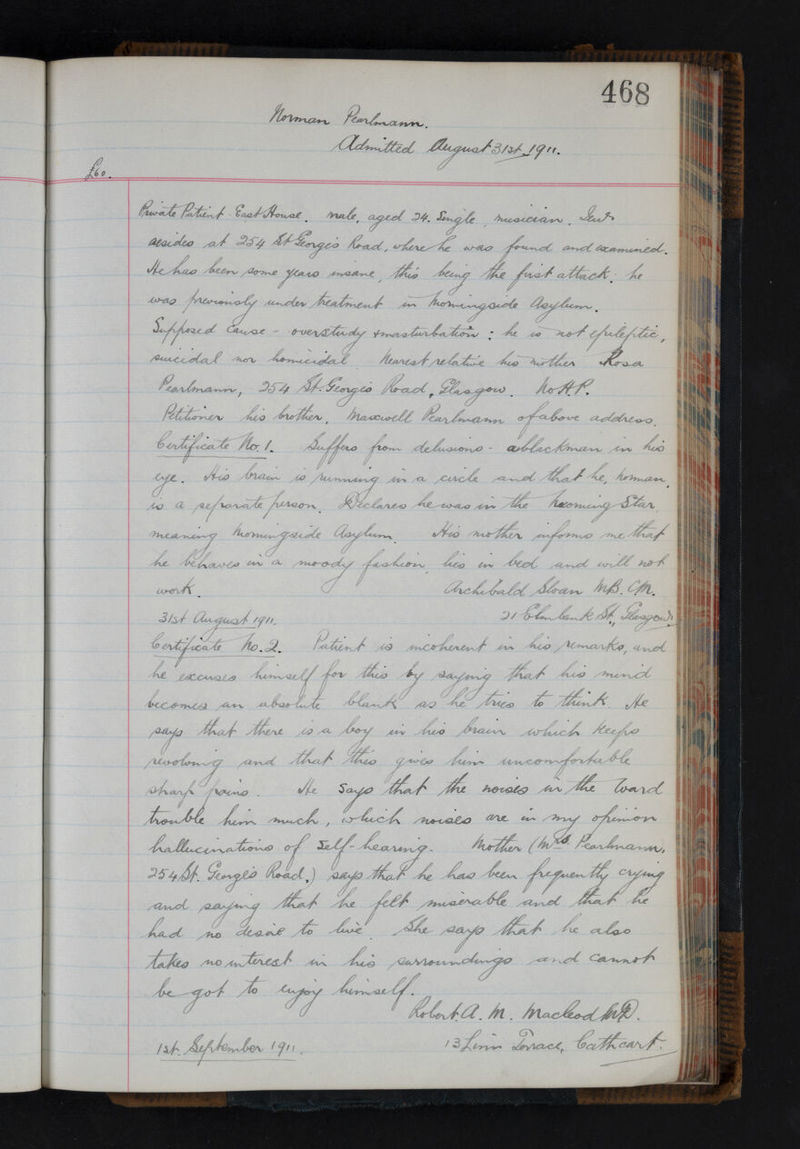 468
Norman Pearlmann.
Admitted August 31st 1911.
£60.
Private Patient East House. male, aged 24. Single, musician, Jew
resides at 254 St Georges Road, where he was found and examined.
He has been some years insane, this being the first attack: he
was previously under treatment in Morningside Asylum.
Supposed cause - overstudy & masturbation: he is not epileptic,
suicidal nor homicidal Nearest relative his mother Rosa
Pearlmann, 254 St. Georges Road, Glasgow. No H.P.
Petitioner his brother, Maxwell Pearlmann of above address.
Certificate No. 1. Suffers from delusions - a blackman in his
eye. His brain is running in a circle and that he, Norman,
is a separate person. Declares he was in the Morning Star
meaning Morningside Asylum. His mother informs me that
he behaves in a moody fashion, lies in bed and will not
work. Archibald Sloan M.B. C.M.
31st August 1911. 21 Elmbank St., Glasgow.
Certificate No. 2. Patient is incoherent in his remarks, and
he excuses himself for this by saying that his mind
becomes an absolute blank as he tries to think. He
says that there is a boy in his brain which keeps
revolving and that this gives him uncomfortable
sharp pains. He says that the noises in the ward
trouble him much, which noises are in my opinion
hallucinations of self-hearing. Mother (Mrs. Pearlmann,
254 St. George's Road,) says that he has been frequently crying
and saying that he felt miserable and that he
had no desire to live. She says that he also
takes no interest in his surroundings and cannot
be got to enjoy himself.
Robert. A. M. Macleod M.D.
1st. September 1911. 13 Linn Terrace, Cathcart.